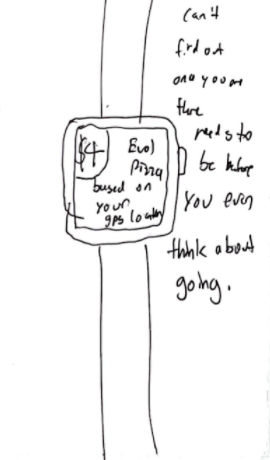 $4
Evol
pizza
based on
your
gps location
can't
find out
once you are
there
needs to
be before
you even
think about
going.